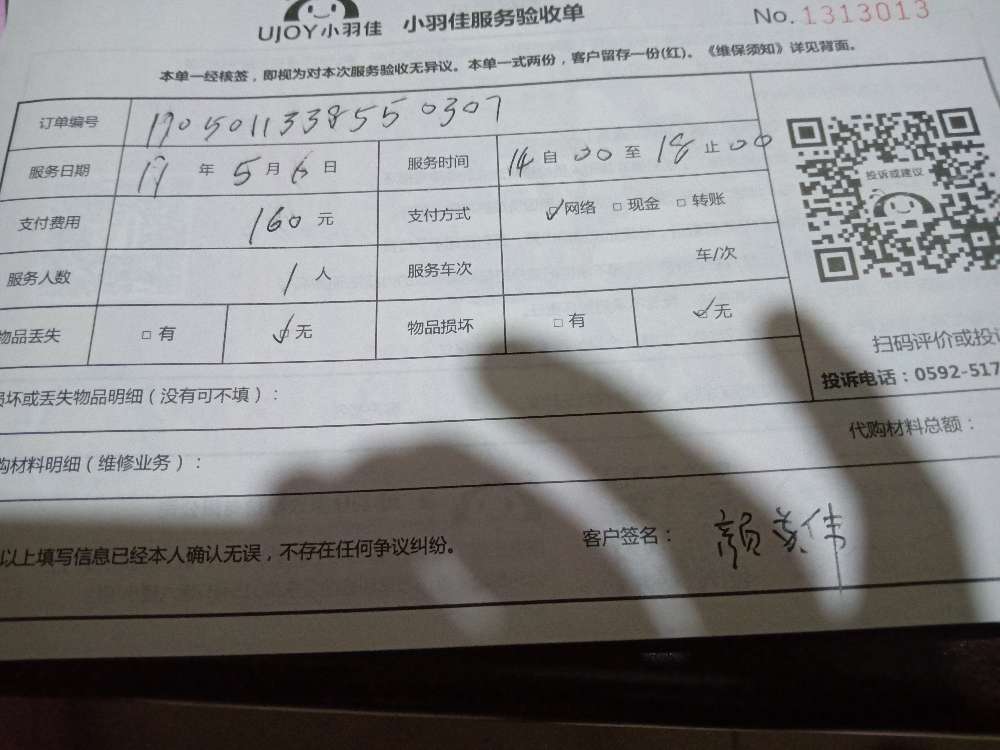 UJOY小羽佳 小羽佳服务验收单 No.1313013
本单一经核签，即视为对本次服务验收无异议。本单一式两份，客户留存一份(红)。《维保须知》详见背面。
订单编号 1905011338550307
服务日期 19 年 5 月 6 日 服务时间 14 自 00 至 18 止 00
投诉或建议
支付费用 160 元 支付方式 ☑网络 □现金 □转账
服务人数 1 人 服务车次 车/次
物品丢失 □有 ☑无 物品损坏 □有 ☑无
扫码评价或投诉
投诉电话：0592-517
损坏或丢失物品明细（没有可不填）：
购材料明细（维修业务）： 代购材料总额：
以上填写信息已经本人确认无误，不存在任何争议纠纷。 客户签名： 颜 伟